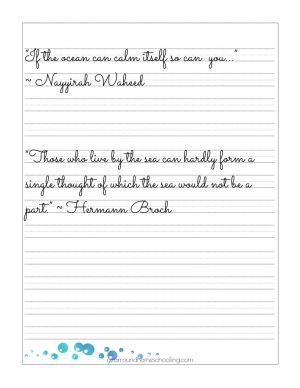 "If the ocean can calm itself so can you..."
~ Nayyirah Waheed
"Those who live by the sea can hardly form a
single thought of which the sea would not be a
part." ~ Hermann Broch
yearroundhomeschooling.com